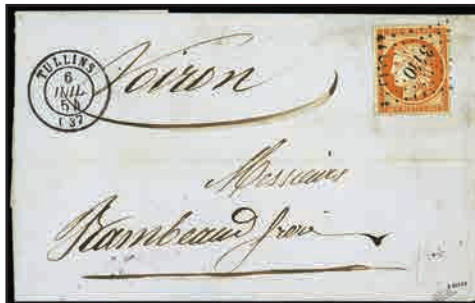 TULLINS
6
JUIL.
54
(37)
Voiron
3410
Messieurs
Rambeaud frères